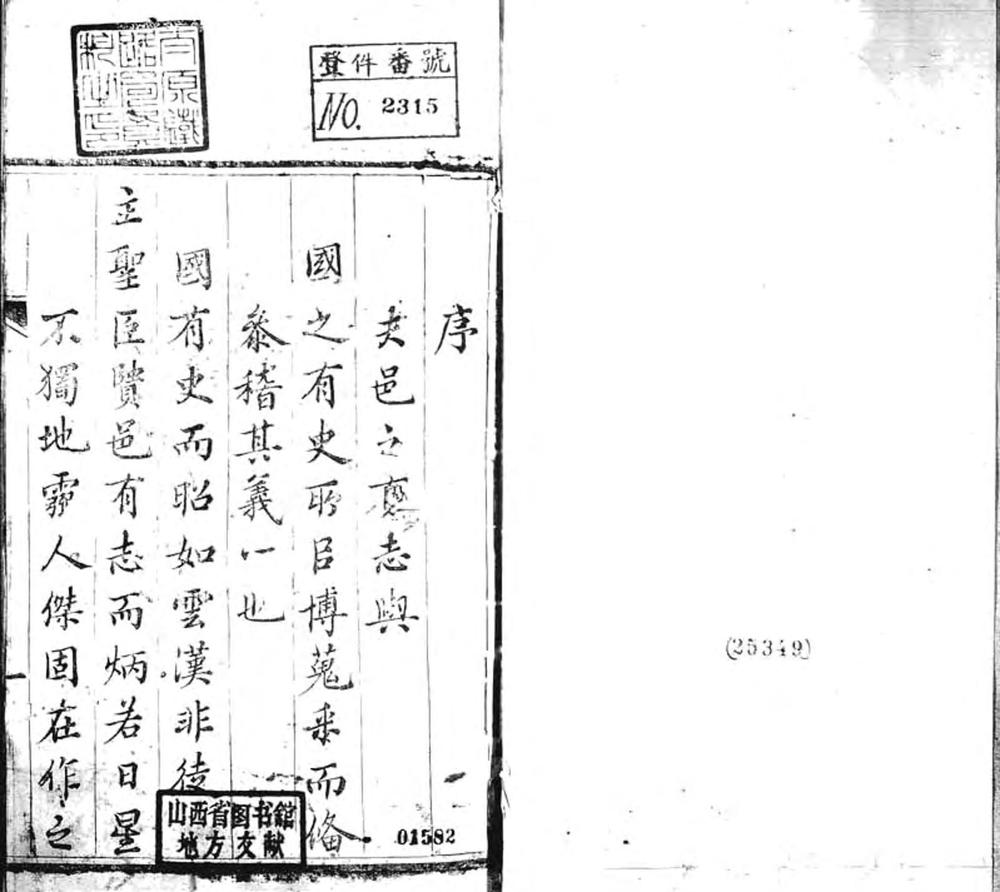 太原鐵
路宣
之印
登件番號
No. 2315
序
夫邑之志與
國之有史所㠯博蒐采而俻
叅稽其義一也
國有史而昭如雲漢非徒
立聖臣賢邑有志而炳若日星
不獨地靈人傑固在作之
山西省图书館
地方文献
01582
(25349)